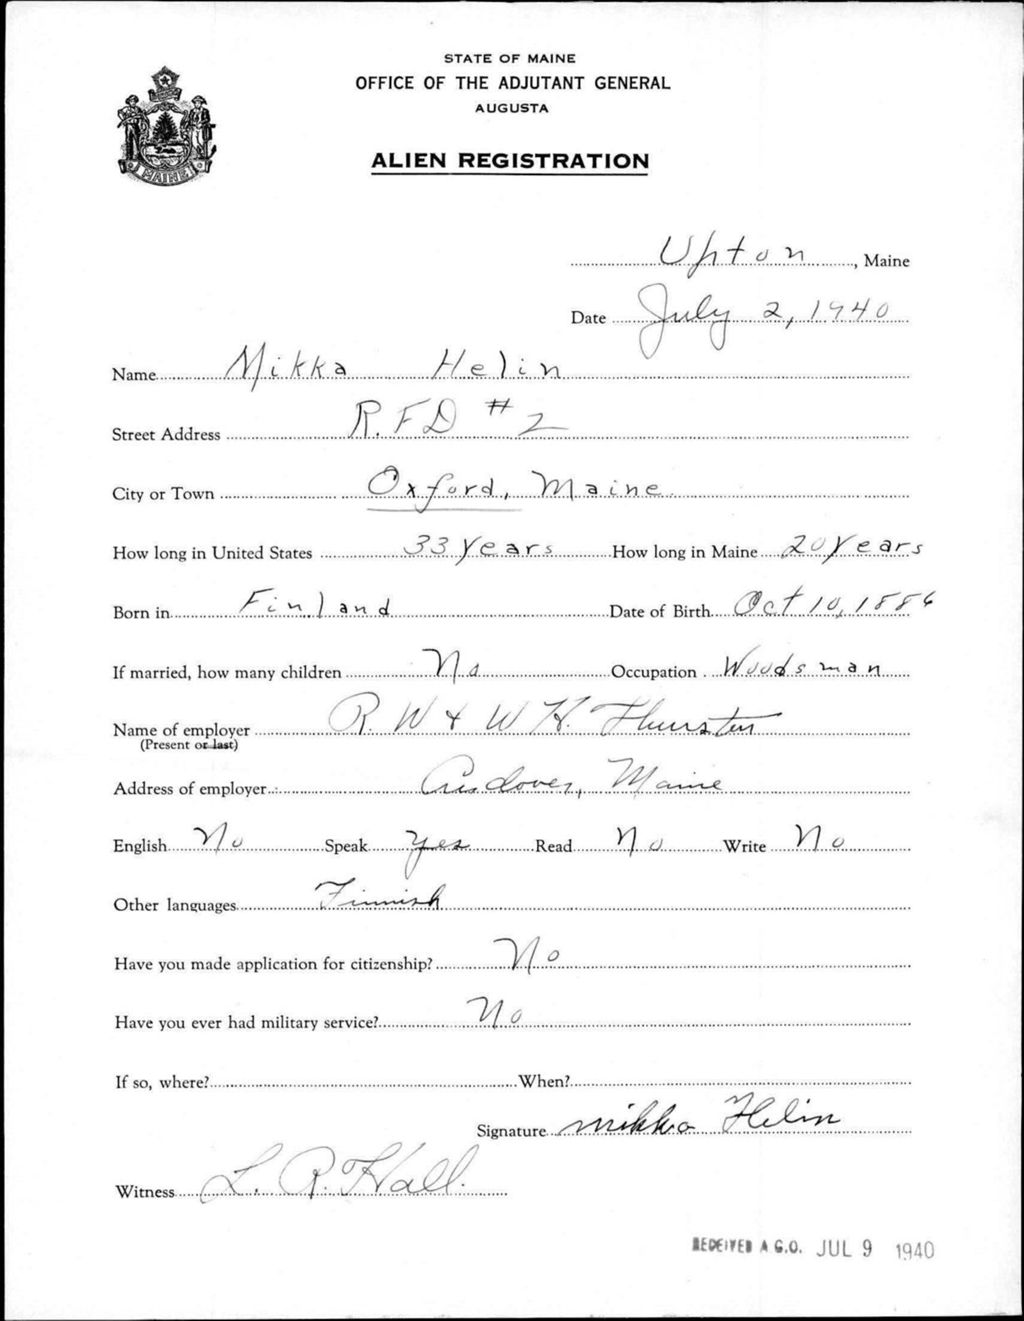 STATE OF MAINE
OFFICE OF THE ADJUTANT GENERAL
AUGUSTA
ALIEN REGISTRATION
MAINE
Upton, Maine
Date July 2, 1940
Name Mikka Helin
Street Address R.F.D #2
City or Town Oxford, Maine
How long in United States 33 years How long in Maine 20 years
Born in Finland Date of Birth Oct 10, 1886
If married, how many children No Occupation Woodsman
Name of employer R. W & W H. Thurston
(Present or last)
Address of employer Andover, Maine
English No Speak Yes Read No Write No
Other languages Finnish
Have you made application for citizenship? No
Have you ever had military service? No
If so, where? When?
Signature mikko Helin
Witness L. R. Hall.
RECEIVED A.G.O. JUL 9 1940